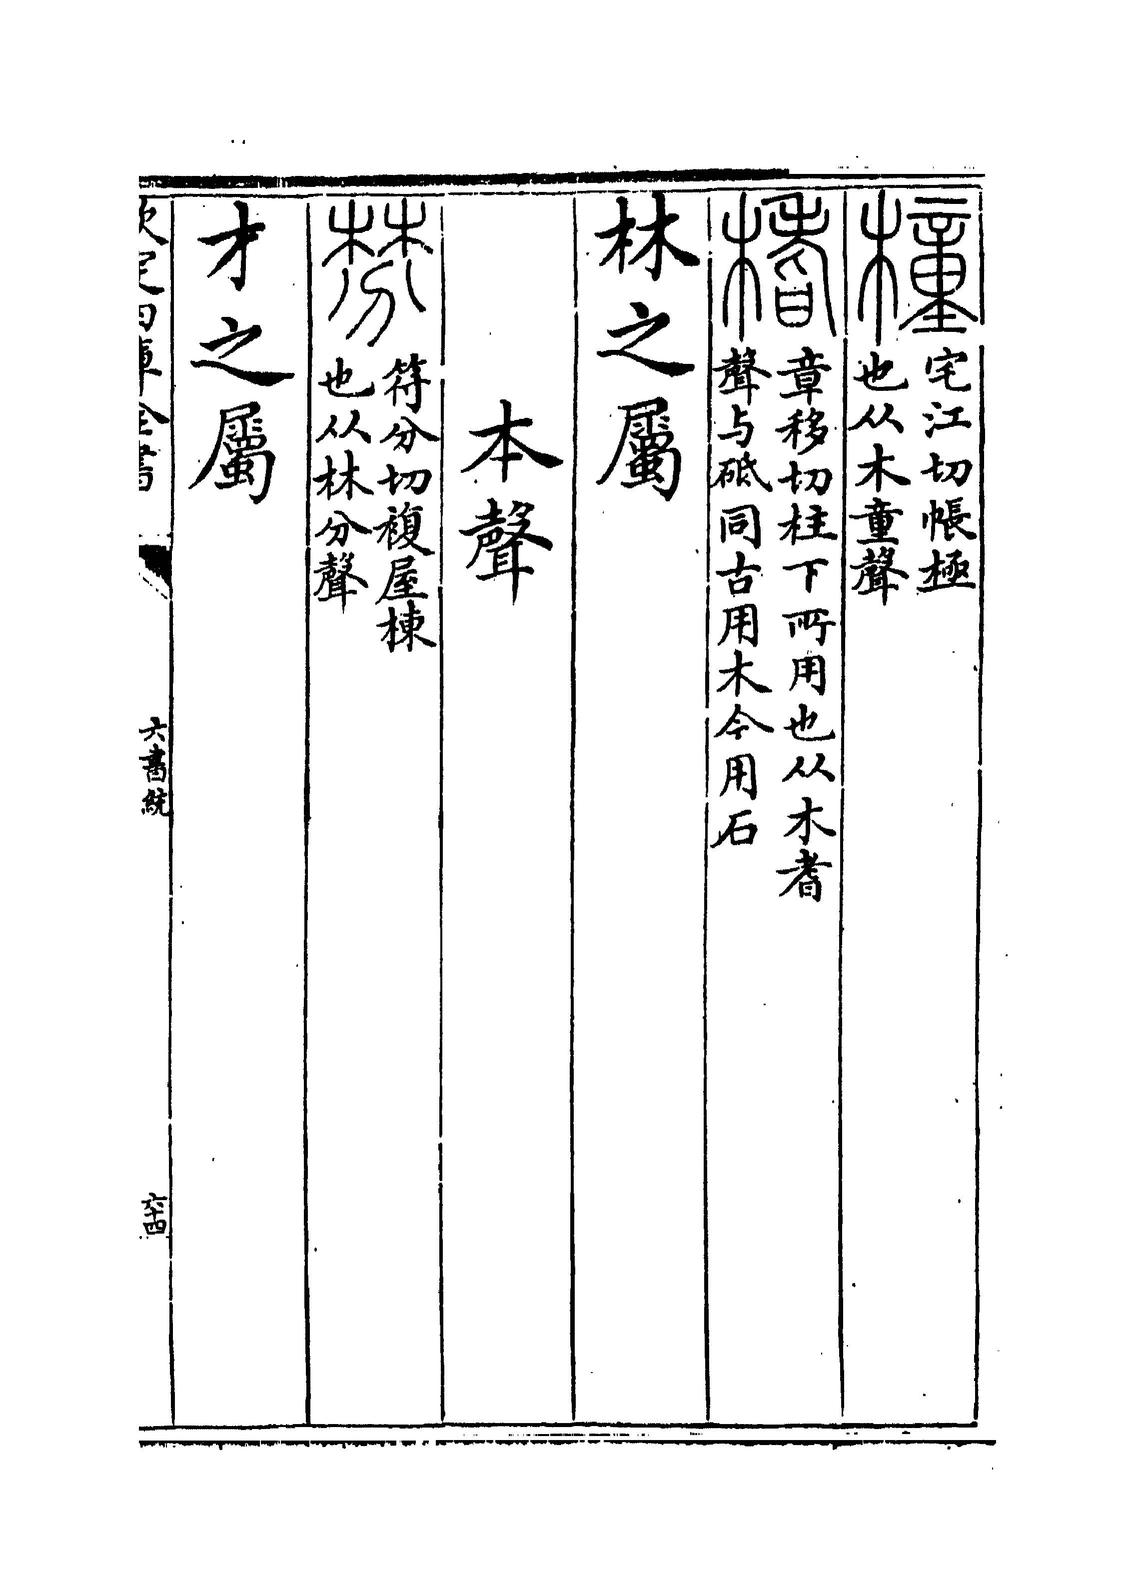 橦 宅江切帳極
也从木童聲
榰 章移切柱下所用也从木耆
聲与砥同古用木今用石
林之屬
本聲
棼 符分切複屋棟
也从林分聲
才之屬
欽定四庫全書
六書統
六十四